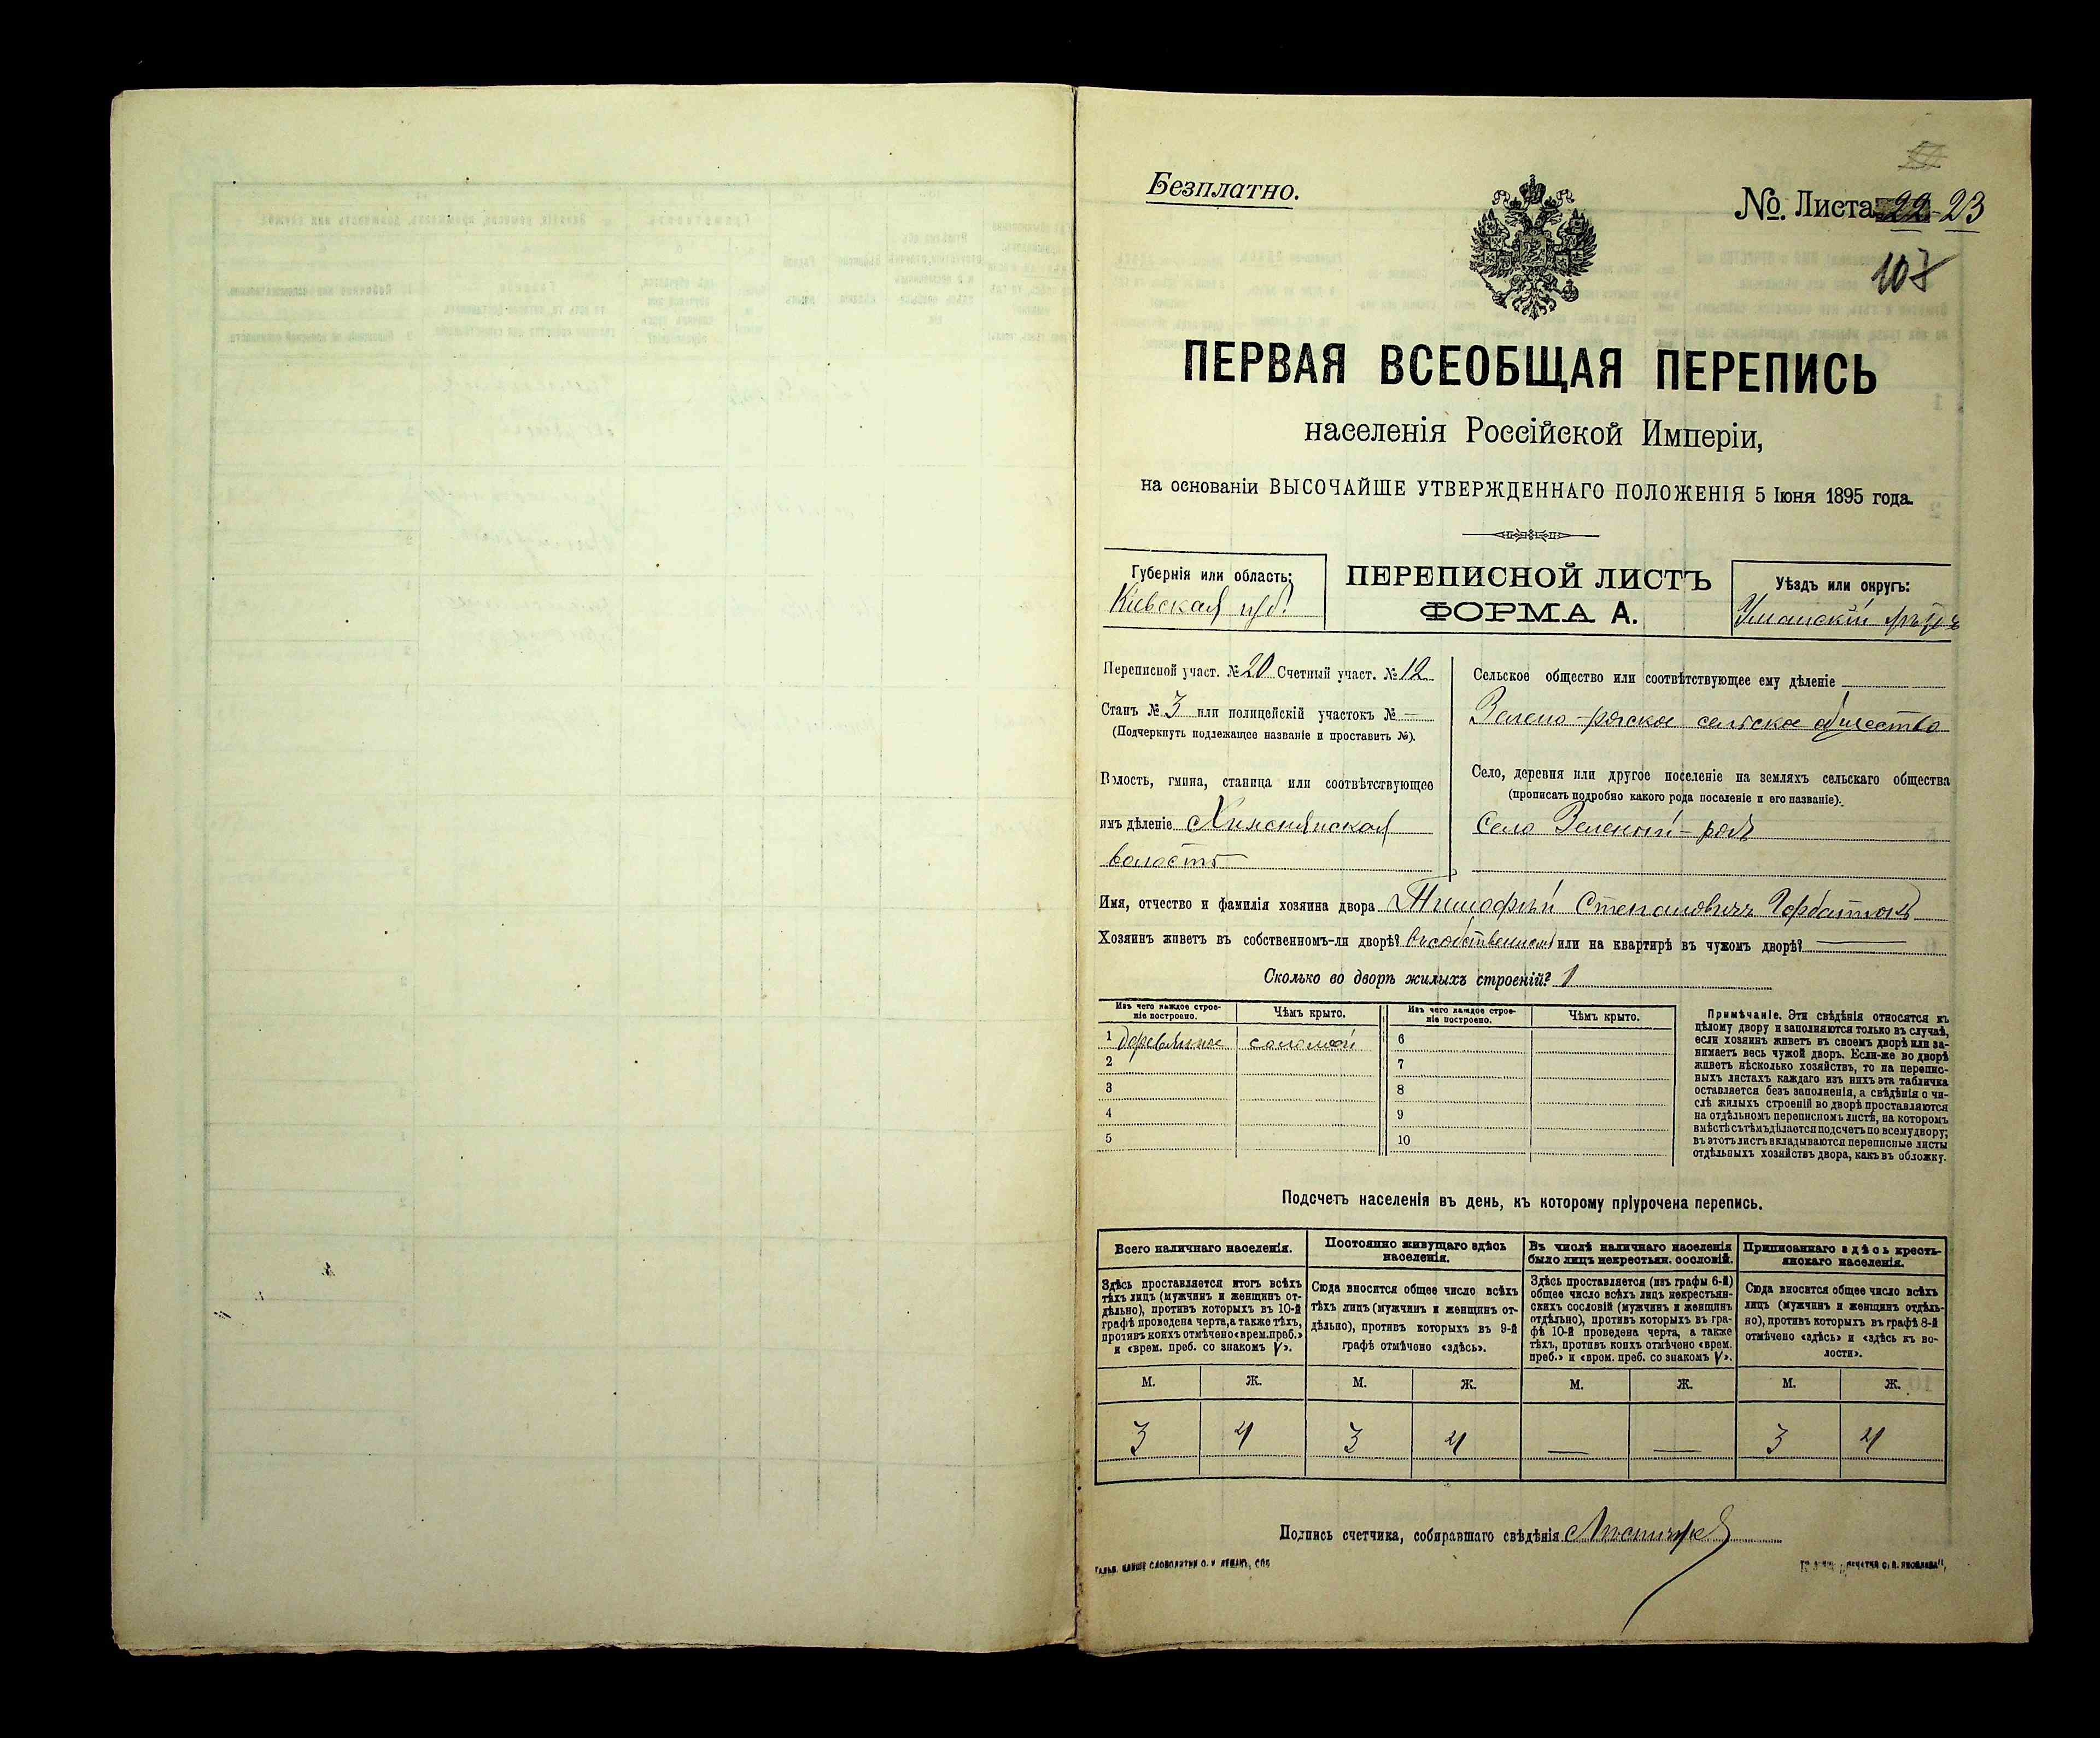 Безплатно.
№ Листа 22-23
107
ПЕРВАЯ ВСЕОБЩАЯ ПЕРЕПИСЬ
населенія Россійской Имперіи,
на основаніи ВЫСОЧАЙШЕ УТВЕРЖДЕННАГО ПОЛОЖЕНІЯ 5 Іюня 1895 года.
Губернія или область:
Кіевская губ.
ПЕРЕПИСНОЙ ЛИСТЪ
ФОРМА А.
Уѣздъ или округъ:
Уманскій уѣздъ
Переписной участ. № 20 Счетный участ. № 12
Станъ № 3 или полицейскій участокъ № —
(Подчеркнуть подлежащее названіе и проставить №).
Волость, гмина, станица или соотвѣтствующее
имъ дѣленіе
волость
Сельское общество или соотвѣтствующее ему дѣленіе
Зелено-рогское сельское общество
Село, деревня или другое поселеніе на земляхъ сельскаго общества
(прописать подробно какого рода поселеніе и его названіе).
Село Зеленый-рогъ
Имя, отчество и фамилія хозяина двора Тимофѣй Степановичъ Горбатюкъ
Хозяинъ живетъ въ собственномъ-ли дворѣ? въ собственномъ или на квартирѣ въ чужомъ дворѣ? —
Сколько во дворѣ жилыхъ строеній? 1
Изъ чего каждое строе-
ніе построено.
Чѣмъ крыто.
Изъ чего каждое строе-
ніе построено.
Чѣмъ крыто.
1 деревянное соломой 6
2 7
3 8
4 9
5 10
Примѣчаніе. Эти свѣдѣнія относятся къ
цѣлому двору и заполняются только въ случаѣ,
если хозяинъ живетъ въ своемъ дворѣ или за-
нимаетъ весь чужой дворъ. Если-же во дворѣ
живетъ нѣсколько хозяйствъ, то на перепис-
ныхъ листахъ каждаго изъ нихъ эта табличка
оставляется безъ заполненія, а свѣдѣнія о чи-
слѣ жилыхъ строеній во дворѣ проставляются
на отдѣльномъ переписномъ листѣ, на которомъ
вмѣстѣ съ тѣмъ дѣлается подсчетъ по всему двору;
въ этотъ листъ вкладываются переписные листы
отдѣльныхъ хозяйствъ двора, какъ въ обложку.
Подсчетъ населенія въ день, къ которому пріурочена перепись.
Всего наличнаго населенія.
Здѣсь проставляется итогъ всѣхъ
тѣхъ лицъ (мужчинъ и женщинъ от-
дѣльно), противъ которыхъ въ 10-й
графѣ проведена черта, а также тѣхъ,
противъ коихъ отмѣчено «врем. преб.»
и «врем. преб. со знакомъ V».
Постоянно живущаго здѣсь
населенія.
Сюда вносится общее число всѣхъ
тѣхъ лицъ (мужчинъ и женщинъ от-
дѣльно), противъ которыхъ въ 9-й
графѣ отмѣчено «здѣсь».
Въ числѣ наличнаго населенія
было лицъ некрестьян. сословій.
Здѣсь проставляется (изъ графы 6-й)
общее число всѣхъ лицъ некрестьян-
скихъ сословій (мужчинъ и женщинъ
отдѣльно), противъ которыхъ въ гра-
фѣ 10-й проведена черта, а также
тѣхъ, противъ коихъ отмѣчено «врем.
преб.» и «врем. преб. со знакомъ V».
Приписаннаго здѣсь кресть-
янскаго населенія.
Сюда вносится общее число всѣхъ
лицъ (мужчинъ и женщинъ отдѣль-
но), противъ которыхъ въ графѣ 8-й
отмѣчено «здѣсь» и «здѣсь къ во-
лости».
М. Ж. М. Ж. М. Ж. М. Ж.
3 4 3 4 — — 3 4
Подпись счетчика, собиравшаго свѣдѣнія